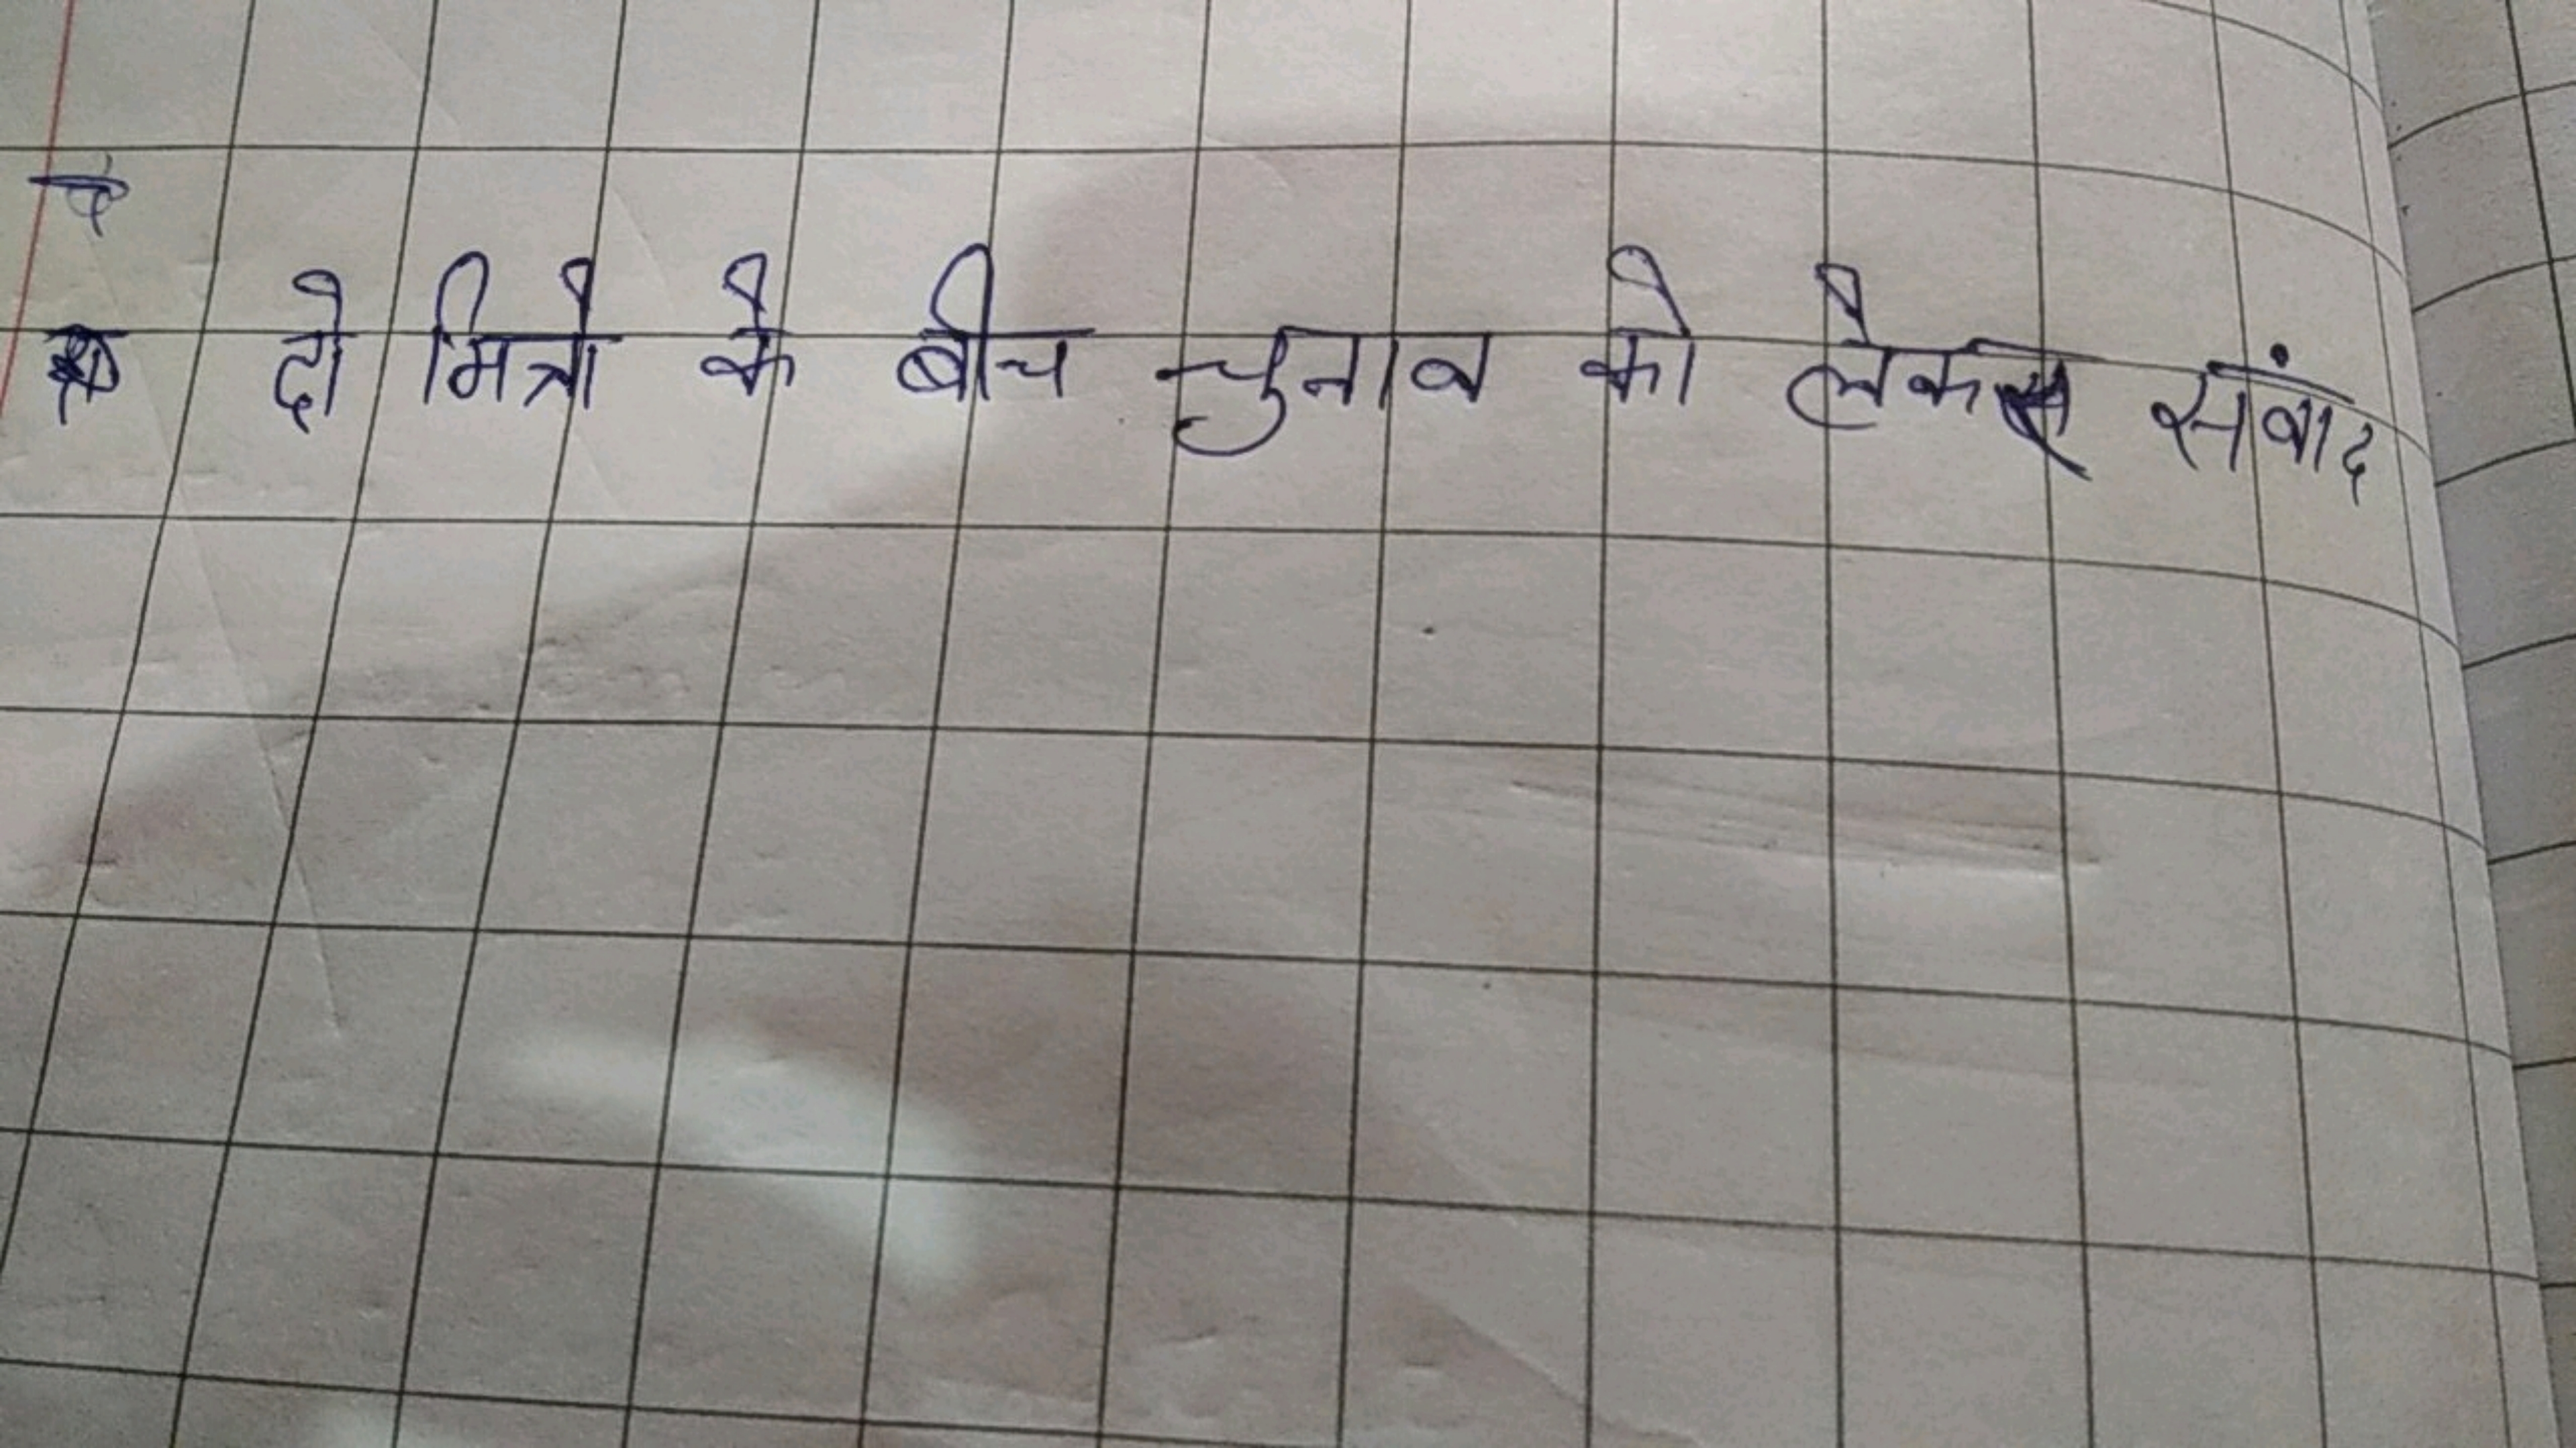 दो मित्रो के बीच चुनाव को लेकर संवाद